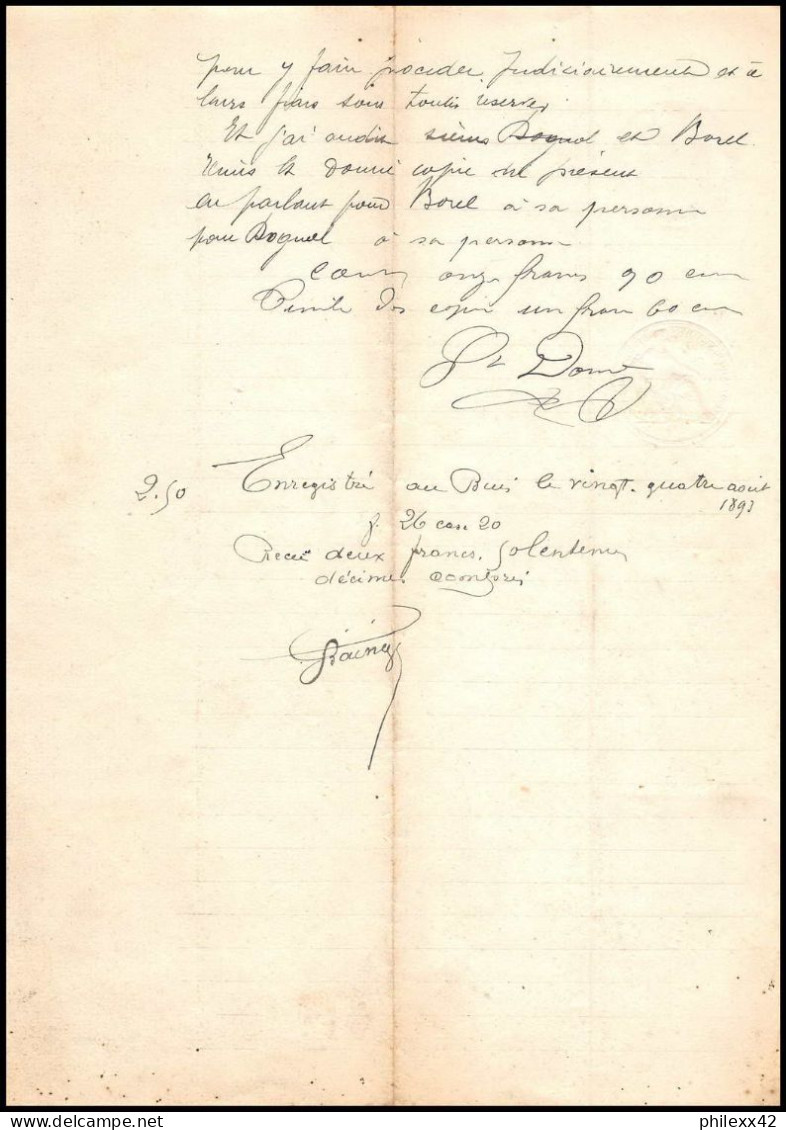 pour y faire procéder Judiciairement et à
leurs frais sous toutes reserves
Et j'ai audit sieurs Rognol et Borel
remis et donné copie du présent
en parlant pour Borel à sa personne
pour Rognol à sa personne
onze francs 90
copie un franc 60
2.50
Enregistré au Buis le vingt-quatre août
1893
f. 26 case 20
Recu deux francs, 50 centimes
décimes compris
philexx42